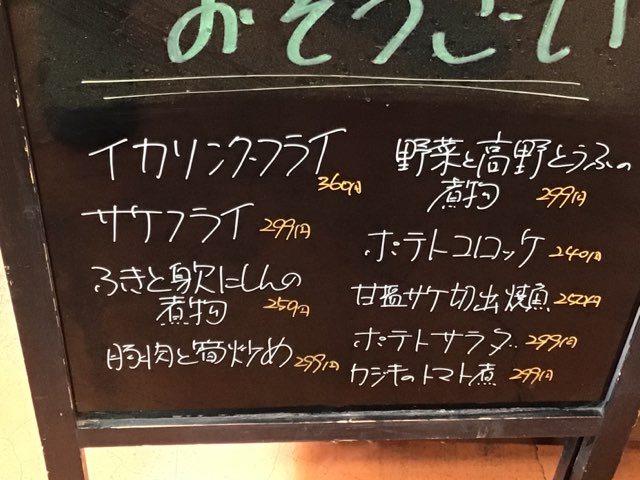 おそうざい
イカリングフライ
360円
サケフライ 299円
ふきと身欠にしんの
煮物 259円
豚肉と筍炒め 299円
野菜と高野とうふの
煮物 299円
ポテトコロッケ 240円
甘塩サケ切出焼魚 250円
ポテトサラダ 299円
カジキのトマト煮 299円